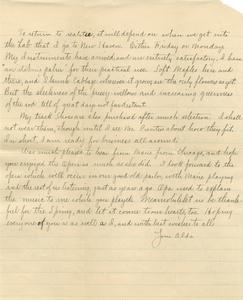 To return to realities, it will depend on when we get into
the Lab that I go to New Haven. Either Friday or Monday.
My Instruments have arrived and are entirely satisfactory. I have
no for their practical use. Soft Maples here and
there, and Skunk Cabbage wherever it grows are the only flowers as yet.
But the sleekness of the pussy-willows and increasing greenness
of the sod tell of great days not far distant.
My track Shoes are also purchased after much selection. I shall
not wear them, though until I see Mr. about how they fit.
In short, I am ready for business all around.
We were pleased to hear from Marie from Chicago, and hope
you enjoyed the Opera as much as she did. I look forward to the
open which will occur in our good old parlor, with Marie playing
and the rest of us listening, just as years ago. Apa used to explain
the music to me while you played. Meanwhile let us be thank-
ful for the Spring, and let it come to our hearts too. Hoping
every one of you is as well as I, and with best wishes to all
Your Aldo